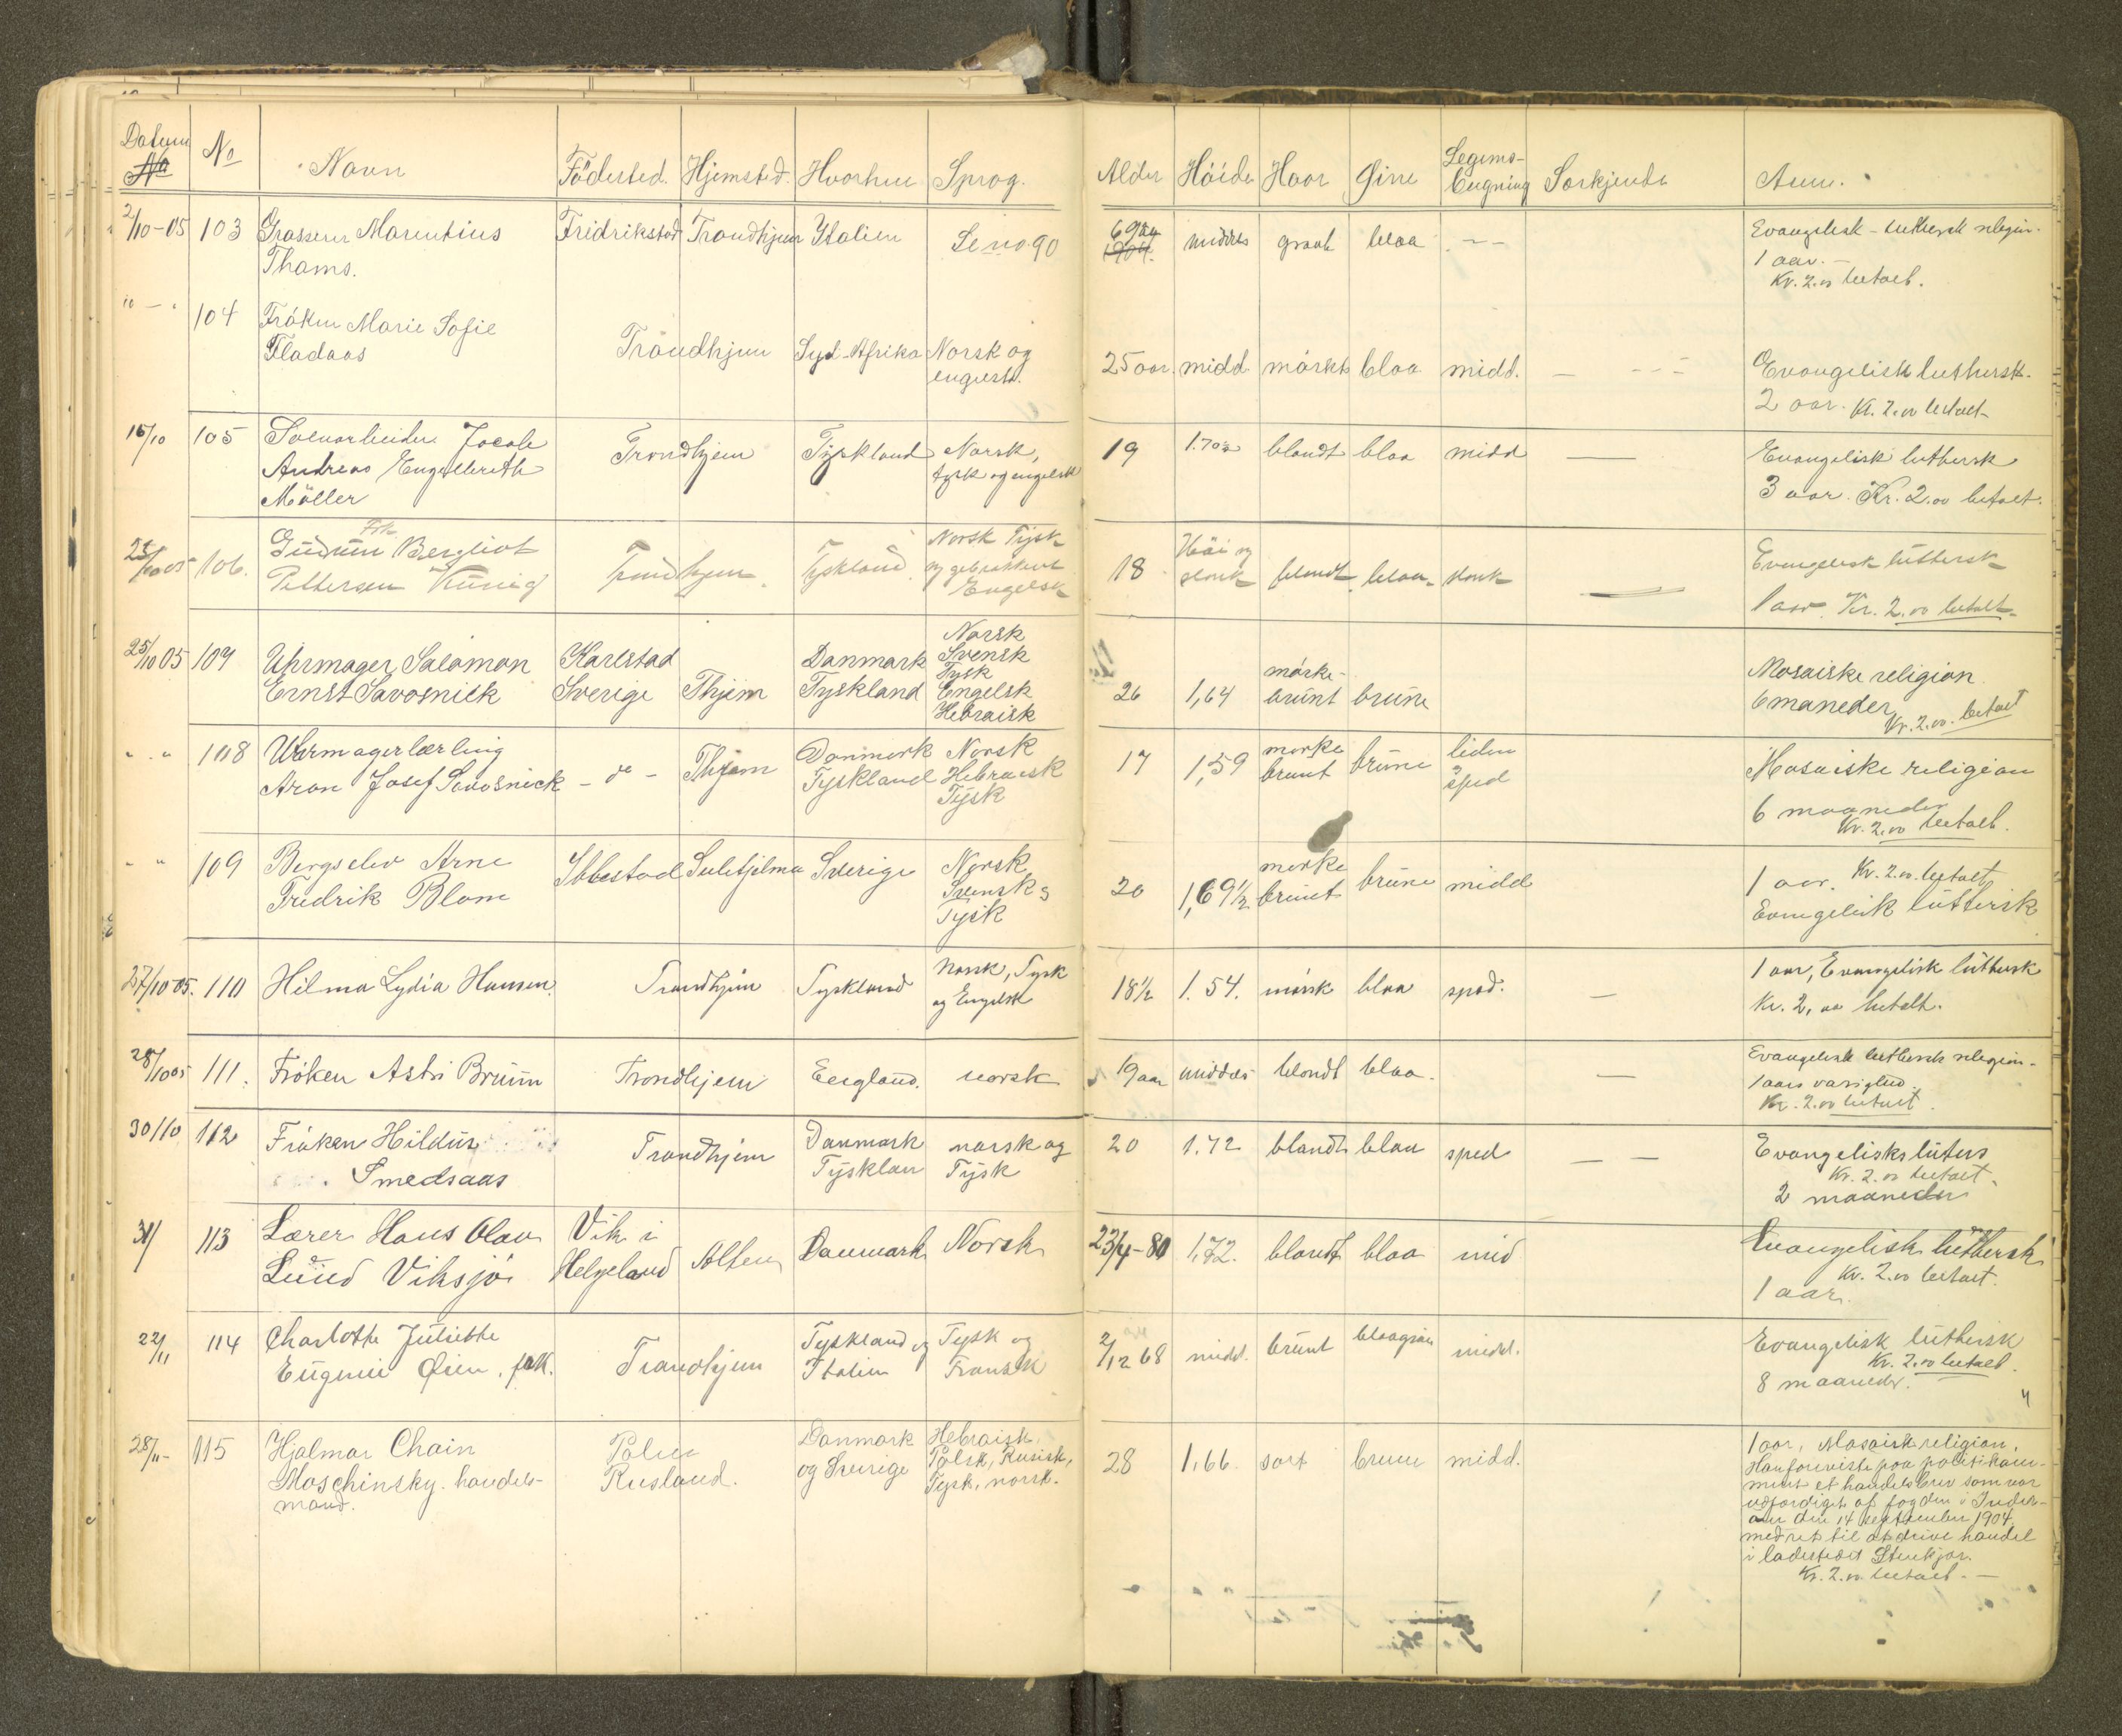 Datum No Navn Födested. Hjemsted. Hvorhen Sprog. Alder Höide Haar Öine Legems- Særkjende Anm.
No bygning
2/10-05 103 Grosserer Marentius Fridrikstad Trondhjem Italien Se no 90 69 aar middels graat blaa - - Evangelisk-luthersk religion.
Thams. 1 aar.-
Kr. 2.00 betalt.
" - " 104 Fröken Marie Sofie
Fladaas Trondhjem Syd-Afrika Norsk og 25 aar. midd. mörkt blaa midd. - - - - Evangelisk luthersk.
engelsk. 2 aar. Kr. 2.00 betalt
16/10 105 Jacob Trondhjem Tyskland Norsk, 19 1.70½ blondt blaa midd — Evangelisk luthersk
Andreas Engelbreth tysk og engelsk 3 aar. Kr. 2.00 betalt.
Möller
25/10 05 106. Frk. Norsk Tysk Höi og
Gudrun Bergliot Trondhjem. Tyskland. og gebrokkent 18 slank blondt. blaa. slank — Evangelisk luthersk
Pettersen Engelsk 1 aar. Kr. 2.00 betalt.
25/10 05 107 Uhrmager Salomon Karlstad Danmark Norsk mörke- Mosaiske religion
Ernst Savosnick Sverige Thjem Tyskland Svensk 26 1,64 brunt brune 6 maneder
Tysk Kr. 2.00. betalt
Engelsk
Hebraisk
" . " 108 Uhrmagerlærling Danmark Norsk 17 1,59 mørke brune liden Mosaiske religion
Aron Josef Savosnick - do - Thjem Tyskland Hebraisk brunt og sped 6 maaneder
Tysk Kr. 2.00 betalt.
" " 109 Bergselev Arne Ibbestad Sulitjelma Sverige Norsk 20 1,69½ mørke brune midd 1 aar. Kr. 2.00 betalt
Fredrik Blom Svensk og brunt Evangelisk luthersk
Tysk
27/10 05. 110 Hilma Lydia Hansen. Trondhjem Tyskland Norsk, Tysk 18½ 1.54. mörk blaa sped. — 1 aar, Evangelisk luthersk
og Engelsk Kr. 2,00 betalt.
28/10 05 111. Fröken Astri Bruun Trondhjem England. norsk 19 aar middels blondt blaa. — Evangelisk luthersk religion.
1 aars varighed.
Kr. 2.00 betalt.
30/10 112 Fröken Hildur Trondhjem Danmark norsk og 20 1.72 blondt blaa sped — — Evangelisk luters
Smedsaas Tysklan Tysk Kr. 2.00 betalt.
2 maaneder
31/ 113 Lærer Hans Olav Vik i Alten Danmark Norsk 23/4-80 1,72. blondt blaa mid Evangelisk luthersk
Lund Viksjö Helgeland Kr. 2.00 betalt.
1 aar.
22/11 114 Charlotte Juliette Trondhjem Tyskland og Tysk og 2/12 68 midd. brunt blaagraa midd. Evangelisk luthersk
Eugenie Øien, frk. Italien Fransk Kr. 2.00 betalt.
8 maaneder.
28/11- 115 Hjalmar Chain Polen Danmark Hebraisk, 28 1,66 sort brune midd. 1 aar, Mosaisk religion.
Moschinsky. handels- Rusland. og Sverige Polsk, Rusisk, Han foreviste paa politikam-
mand. Tysk, norsk. meret et handelsbrev som var
udfærdiget af fogden i Inder-
øen den 14 september 1904
med ret til at drive handel
i ladestedet Stenkjær.
Kr. 2.00 betalt. —